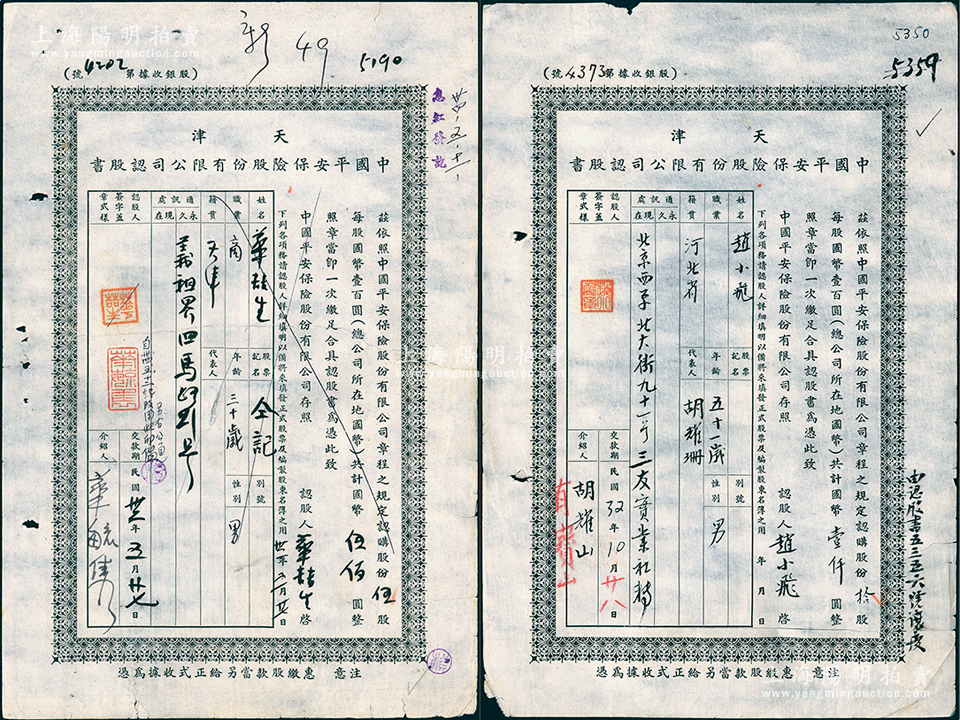 上海陽明拍賣
www.yangmingauction.com
新 49
5190
股銀收據第4202號
天津
中國平安保險股份有限公司認股書
茲依照中國平安保險股份有限公司章程之規定認購股份伍股
每股國幣壹百圓(總公司所在地國幣)共計國幣伍佰圓整
照章當卽一次繳足合具認股書爲憑此致
中國平安保險股份有限公司存照
認股人
啓
卅一年五月廿七日
下列各項務請認股人詳細填明以備將來填發正式股票及編製股東名簿之用
姓名
股票記名 仝記
別號
職業 商
年齡 三十歲
性別 男
籍貫 天津
代表人
通訊處 永久 現在
義租界四馬路
認股人簽字蓋章式樣
交款期 民國卅一年五月廿七日
介紹人
注意 惠繳股款當另給正式收據爲憑
5350
5359
股銀收據第4373號
天津
中國平安保險股份有限公司認股書
茲依照中國平安保險股份有限公司章程之規定認購股份拾股
每股國幣壹百圓(總公司所在地國幣)共計國幣壹仟圓整
照章當卽一次繳足合具認股書爲憑此致
中國平安保險股份有限公司存照
認股人 趙小飛 啓
年 月 日
下列各項務請認股人詳細填明以備將來填發正式股票及編製股東名簿之用
姓名 趙小飛
股票記名
別號
職業
年齡 五十一歲
性別 男
籍貫 河北省
代表人 胡耀珊
通訊處 永久 現在
北京西單北大街九十一号三友實業社轉
認股人簽字蓋章式樣
交款期 民國32年10月廿八日
介紹人 胡耀山
注意 惠繳股款當另給正式收據爲憑
上海陽明拍賣
www.yangmingauction.com